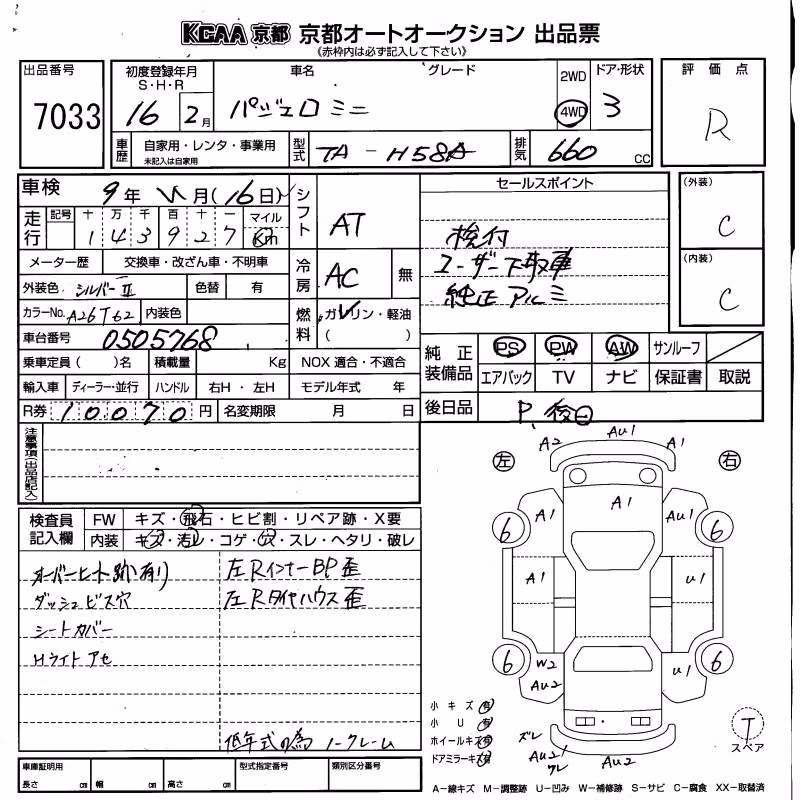 KCAA京都 京都オートオークション 出品票
《赤枠内は必ず記入して下さい》
出品番号 7033
初度登録年月 S・H・R 16 2月
車名 グレード パジェロ ミニ
2WD 4WD
ドア・形状 3
評価点 R
車歴 自家用・レンタ・事業用 未記入は自家用
型式 TA - H58A
排気 660 cc
車検 9年 月(16日)
走行 記号 十 万 千 百 十 一 マイル
1 4 3 9 2 7 Km
シフト AT
セールスポイント
検付
ユーザー下取車
純正アルミ
(外装) C
(内装) C
メーター歴 交換車・改ざん車・不明車
冷房 AC 無
外装色 シルバーⅡ 色替 有
カラーNo. A26T62 内装色
燃料 ガソリン・軽油 ( )
車台番号 0505768
乗車定員( )名 積載量 Kg NOX 適合・不適合
輸入車 ディーラー・並行 ハンドル 右H・左H モデル年式 年
R券 10070円 名変期限 月 日
純正装備品 PS PW AW サンルーフ
エアバック TV ナビ 保証書 取説
後日品 P. 後日
注意事項(出品店記入)
検査員記入欄 FW キズ・飛石・ヒビ割・リペア跡・X要
内装 キズ・汚レ・コゲ・穴・スレ・ヘタリ・破レ
オーバーヒート跡有り 左RインナーBP歪
ダッシュビス穴 左Rタイヤハウス歪
シートカバー
Hライトアセ
低年式の為 ノークレーム
左 右
A2 Au1 A1
A1 A1 Au1
6 6
A1 U1
6 6
W2 Au2 U1
小キズ 有
小U 有
ホイールキズ 有
ドアミラーキズ 有
ズレ Au21 ワレ Au2
T スペア
車庫証明用 長さ cm 幅 cm 高さ cm 型式指定番号 類別区分番号
A−線キズ M−調整跡 U−凹み W−補修跡 S−サビ C−腐食 XX−取替済